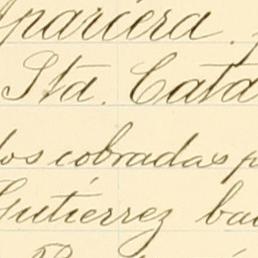 Aparcera.
Sta. Cata
dos cobradas p
Gutierrez ba